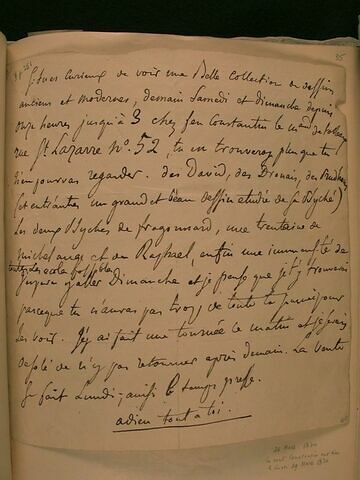 Si tu es curieux de voir une Belle collection de dessins
anciens et modernes, demain Samedi et dimanche depuis
onze heures jusqu'à 3 chez feu Constantin le md de tableaux
rue St Lazarre no. 52, tu en trouveras plus que tu
n'en pourras regarder. des David, des Drouais, des Prudhon
(et entr'autres un grand et beau dessin etude de sa Psyché)
les deux Psychés de fragonard, une trentaine de
michel ange et de Raphael, enfin une immensité de
toutes les ecoles possibles
j'y vais aller Dimanche et je pense que je t'y trouverai
parceque tu n'auras pas trop de toute la journée pour
les voir. J'y ai fait une tournée ce matin et je serais
desolé de n'y pas retourner après demain. La vente
se fait Lundi; ainsi le temps presse.
adieu tout à toi.
26 Mars 1830
29 Mars 1830